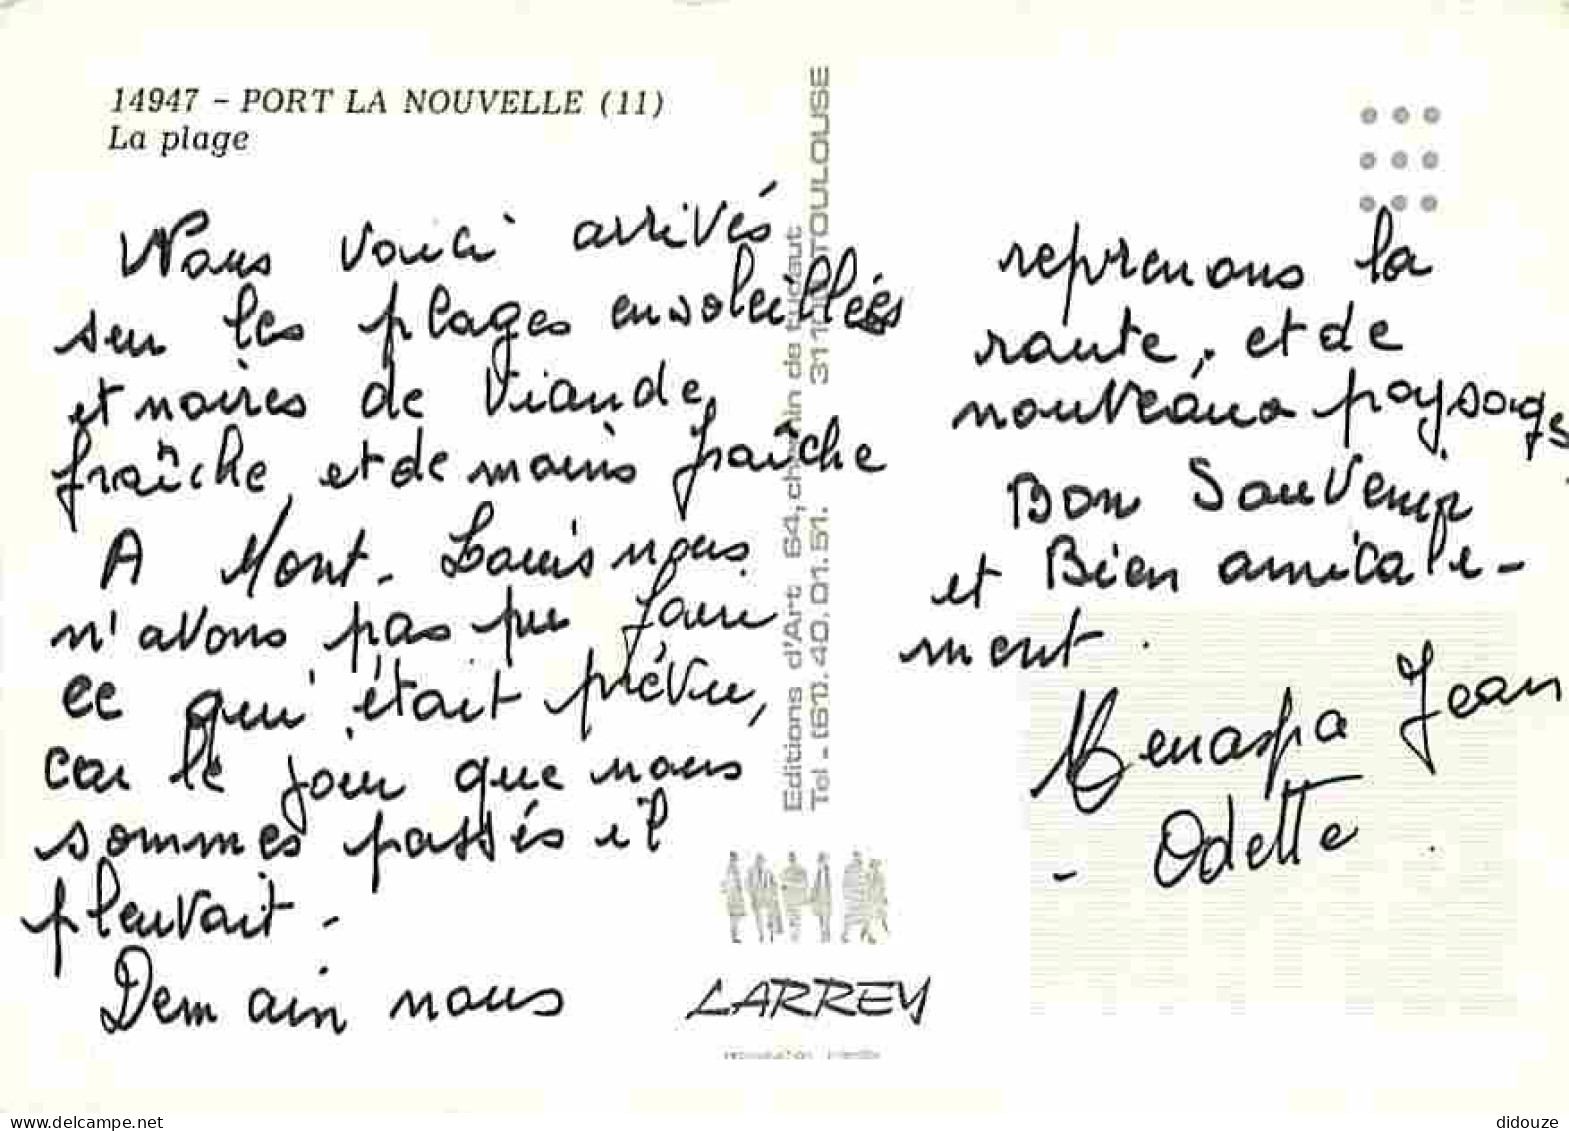 14947 - PORT LA NOUVELLE (11)
La plage
Nous voici arrivés
sur les plages ensoleillées
et noires de Viande
fraîche, et de moins fraîche
A Mont-Louis nous
n'avons pas pu faire
ce qui était prévu,
car le jour que nous
sommes passés il
pleuvait -
Demain nous
reprenons la
route, et de
nouveaux paysages
Bon Souvenir
et Bien amicale-
ment.
Menaspa Jean
- Odette
Editions d'Art 64, chemin de tucaut
Tel - (61). 40.01.51. 31100 TOULOUSE
LARREY
delcampe.net
didouze